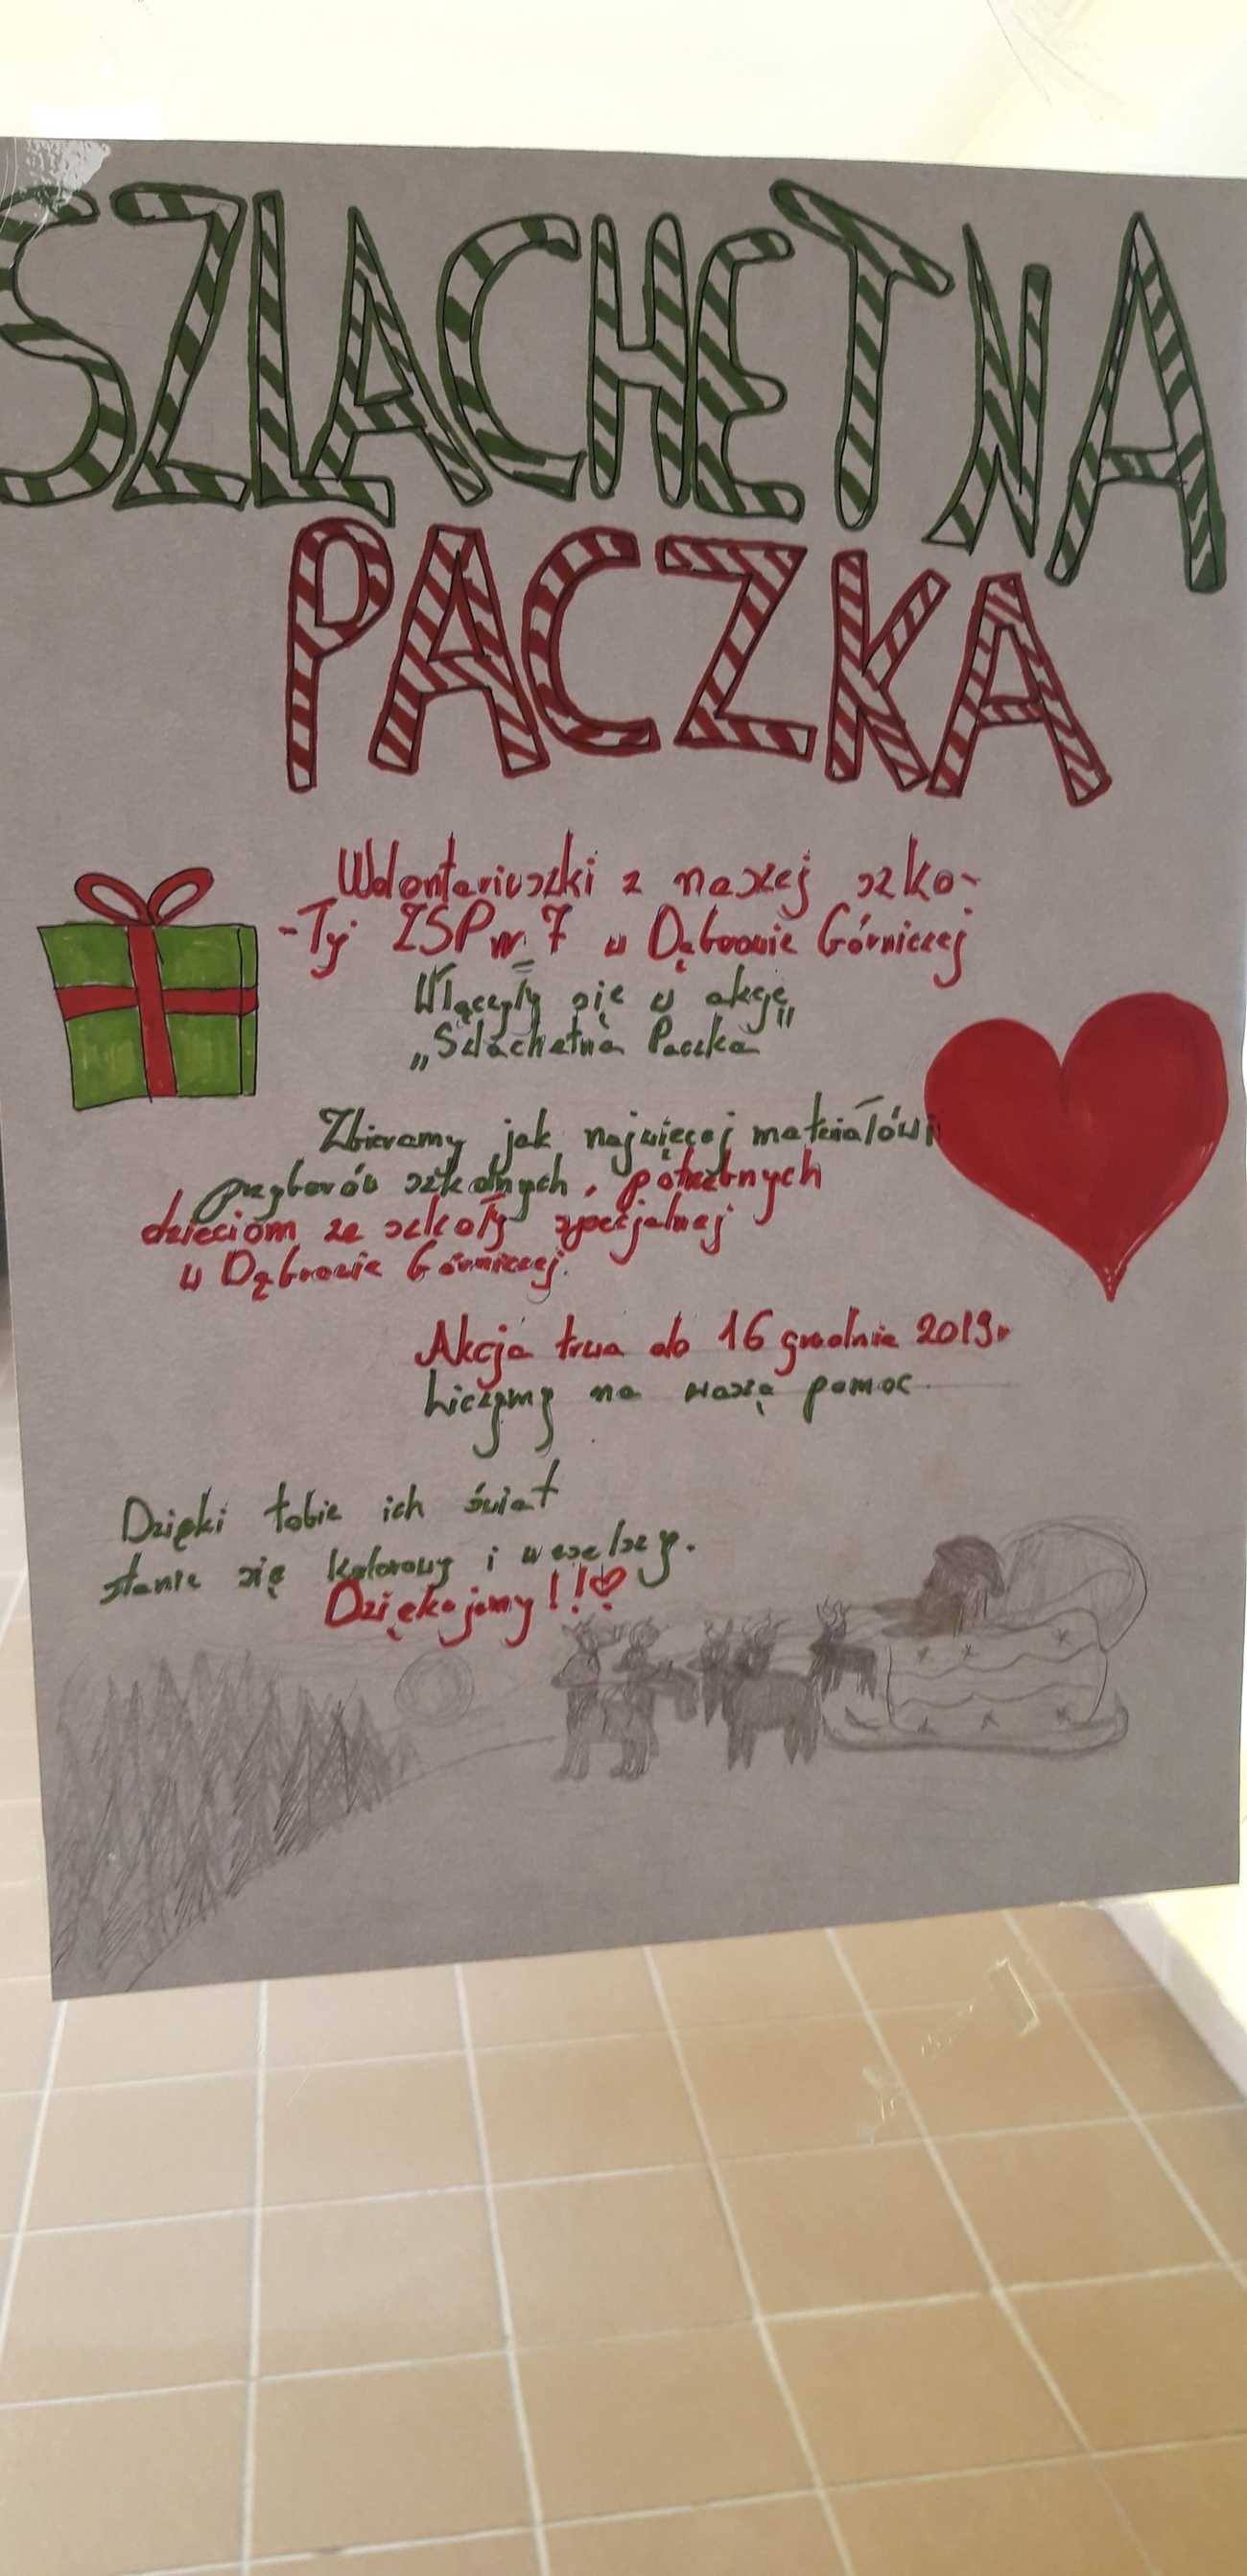 SZLACHETNA
PACZKA
Wolontariuszki z naszej szko-
-Ty ZSP nr 7 w Dąbrowie Górniczej
Włączyły się w akcję
„Szlachetna Paczka"
Zbieramy jak najwięcej materiałów i
przyborów szkolnych, potrzebnych
dzieciom ze szkoły specjalnej
w Dąbrowie Górniczej.
Akcja trwa do 16 grudnia 2019r
Liczymy na waszą pomoc
Dzięki tobie ich świat
stanie się kolorowy i weselszy.
Dziękujemy!!